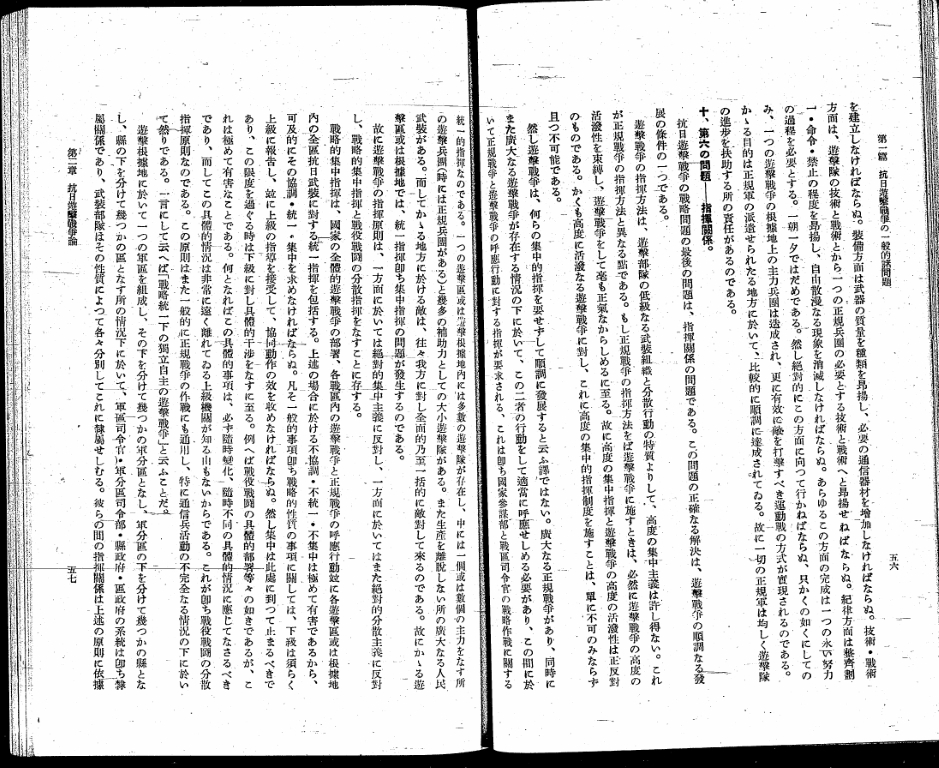 第一篇　抗日遊擊戰爭の一般的諸問題
五六
を建立しなければならぬ。裝備方面は武器の質量を種類を昂揚し、必要の通信器材を增加しなければならぬ。技術・戰術
方面は、遊擊隊の技術と戰術とから一つの正規兵團の必要とする技術と戰術へと昂揚せねばならぬ。紀律方面は整齊劃
一・命令・禁止の程度を昂揚し、自由散漫なる現象を消滅しなければならぬ。あらゆるこの方面の完成は一つの永い努力
の過程を必要とする。一朝一夕ではだめである。然し絕對的にこの方面に向つて行かねばならぬ、只かくの如くにしての
み、一つの遊擊戰爭の根據地上の主力兵團は造成され、更に有效に敵を打擊すべき運動戰の方式が實現されるのである。
かゝる目的は正規軍の派遣せられたる地方に於いて、比較的に順調に達成されてゐる。故に一切の正規軍は均しく遊擊隊
の進步を扶助する所の責任があるのである。
十、第六の問題――指揮關係。
抗日遊擊戰爭の戰略問題の最後の問題は、指揮關係の問題である。この問題の正確なる解決は、遊擊戰爭の順調なる發
展の條件の一つである。
遊擊戰爭の指揮方法は、遊擊部隊の低級なる武裝組織と分散行動の特質よりして、高度の集中主義は許し得ない。これ
が正規戰爭の指揮方法と異なる點である。もし正規戰爭の指揮方法をば遊擊戰爭に施すときは、必然に遊擊戰爭の高度の
活潑性を束縛し、遊擊戰爭をして毫も正氣なからしめるに至る。故に高度の集中指揮と遊擊戰爭の高度の活潑性は正反對
のものである。かくも高度に活潑なる遊擊戰爭に對し、これに高度の集中的指揮制度を施すことは、單に不可のみならず
且つ不可能である。
然し遊擊戰爭は、何らの集中的指揮を要せずして順調に發展すると云ふ譯ではない。廣大なる正規戰爭があり、同時に
また廣大なる遊擊戰爭が存在する情況の下に於いて、この二者の行動をして適當に呼應せしめる必要があり、この間に於
いて正規戰爭と遊擊戰爭の呼應行動に對する指揮が要求される、これは卽ち國家參謀部と戰區司令官の戰略作戰に關する
統一的指揮なのである。一つの遊擊區或は遊擊根據地內には多數の遊擊隊が存在し、中には一個或は數個の主力をなす所
の遊擊兵團(時には正規兵團がある)と幾多の補助力としての大小遊擊隊がある。また生產を離脫しない所の廣大なる人民
武裝がある。而してかゝる地方に於ける敵は、往々我方に對し全面的乃至一括的に敵對して來るのである。故にかゝる遊
擊區或は根據地では、統一指揮卽ち集中指揮の問題が發生するのである。
故に遊擊戰爭の指揮原則は、一方面に於いては絕對的集中主義に反對し、一方面に於いてはまた絕對的分散主義に反對
し、戰略的集中指揮と戰役戰鬪の分散指揮をなすことに存する。
戰略的集中指揮は、國家の全體的遊擊戰爭の部署、各戰區內の遊擊戰爭と正規戰爭の呼應行動竝に各遊擊區或は根據地
內の全區抗日武裝に對する統一指揮を包括する。上述の場合に於ける不協調・不統一・不集中は極めて有害であるから、
可及的にその協調・統一・集中を求めなければならぬ。凡そ一般的事項卽ち戰略的性質の事項に關しては、下級は須らく
上級に報告し、竝に上級の指導を接受して、協同動作の效を收めなければならぬ。然し集中は此處に到つて止まるべきで
あり、この限度を過ぐる時は下級に對し具體的干涉をなすに至る。例へば戰役戰鬪の具體的部署等々の如きであるが、こ
れは極めて有害なことである。何となればこの具體的事項は、必ず隨時變化、隨時不同の具體的情況に應じてなさるべき
であり、而してこの具體的情況は非常に遠く離れてゐる上級機關が知る由もないからである。これが卽ち戰役戰鬪の分散
指揮原則なのである。この原則はまた一般的に正規戰爭の作戰にも通用し、特に通信兵活動の不完全なる情況の下に於い
て然りである。一言にして云へば「戰略統一下の獨立自主の遊擊戰爭」と云ふことだ。
遊擊根據地に於いて一つの軍區を組成し、その下を分けて幾つかの軍分區となし、軍分區の下を分けて幾つかの縣とな
し、縣の下を分けて幾つかの區となす所の情況下に於いて、軍區司令官・軍分區司令部・縣政府・區政府の系統は卽ち隸
屬關係であり、武裝部隊はその性質によつて各々分別してこれに隸屬せしむる。彼らの間の指揮關係は上述の原則に依據
第二章　抗日遊擊戰爭論
五七